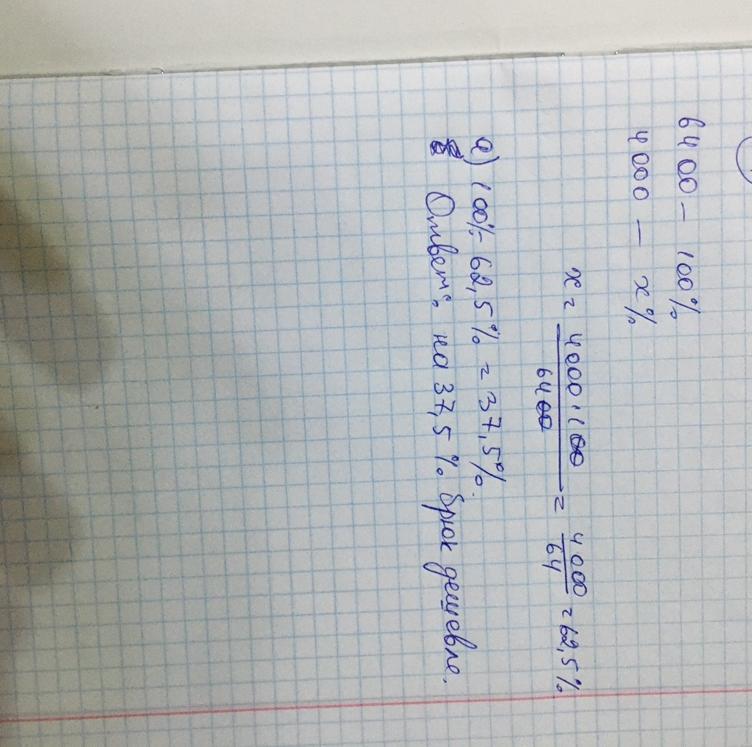 6400 - 100%
4000 - x%
x = 4000·100 / 6400 = 4000 / 64 = 62,5%
а) 100% - 62,5% = 37,5%.
Ответ: на 37,5% брюк дешевле.